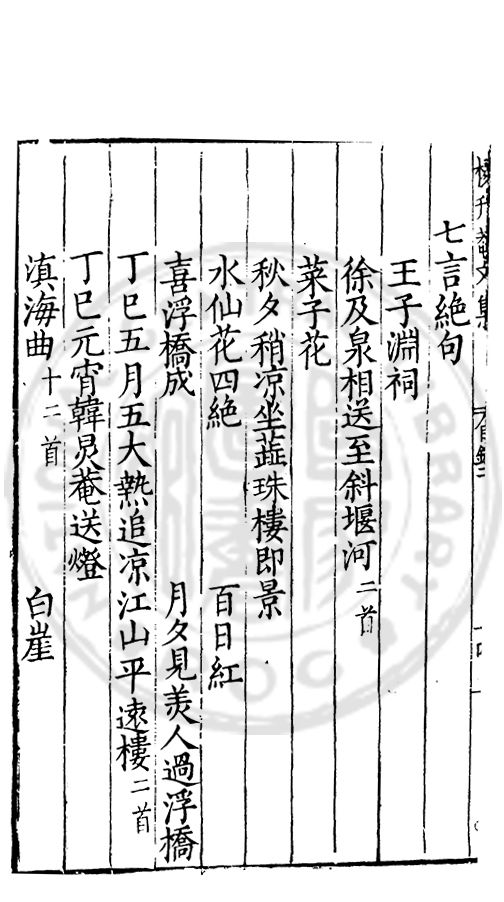 七言絶句
王子淵祠
徐及泉相送至斜堰河二首
菜子花
秋夕稍凉坐蕋珠樓即景
水仙花四絶　百日紅
喜浮橋成　月夕見羙人過浮橋
丁巳五月五大熱追凉江山平遠樓二首
丁巳元宵韓炅菴送燈
滇海曲十二首　白崖